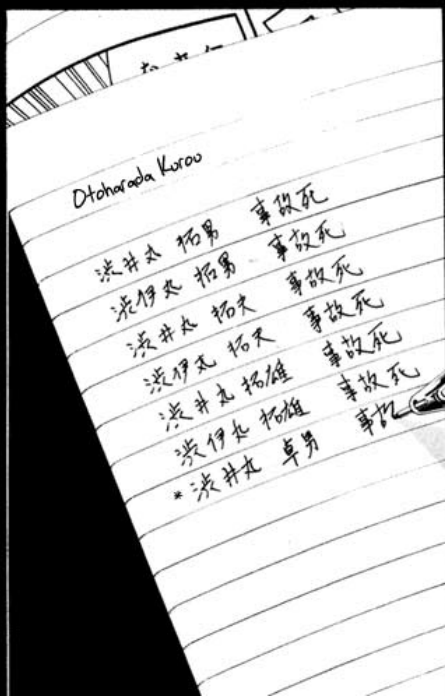 Otoharada Kurou
渋井丸 拓男 事故死
渋伊丸 拓男 事故死
渋井丸 拓夫 事故死
渋伊丸 拓夫 事故死
渋井丸 拓雄 事故死
渋伊丸 拓雄 事故死
*渋井丸 卓男 事故